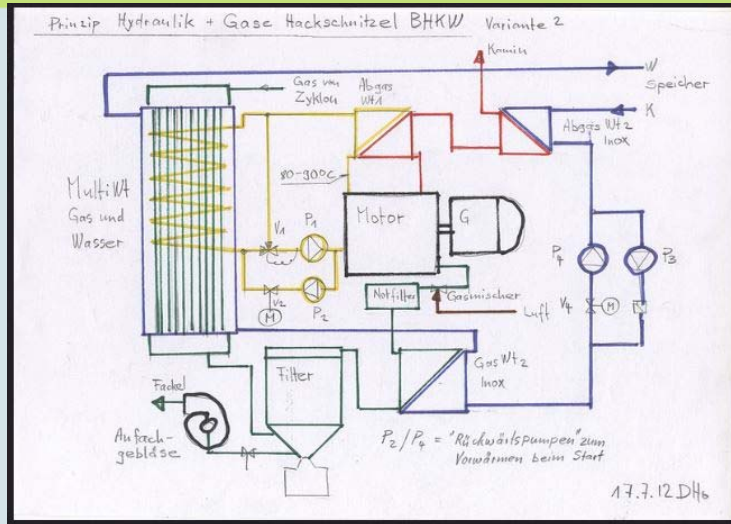 Prinzip Hydraulik + Gase Hackschnitzel BHKW Variante 2
Kamin
W
Speicher
Gas von
Zyklon
Abgas
Wt1
K
Abgas Wt2
Inox
80-90°C
MultiWt
Gas und
Wasser
Motor
G
V1
P1
P4
P3
V2
M
P2
Notfilter
Gasmischer
Luft
V4
M
Gas Wt2
Inox
Filter
Fackel
Anfach-
gebläse
P2/P4 = "Rückwärtspumpen" zum
Vorwärmen beim Start
17.7.12 DHb